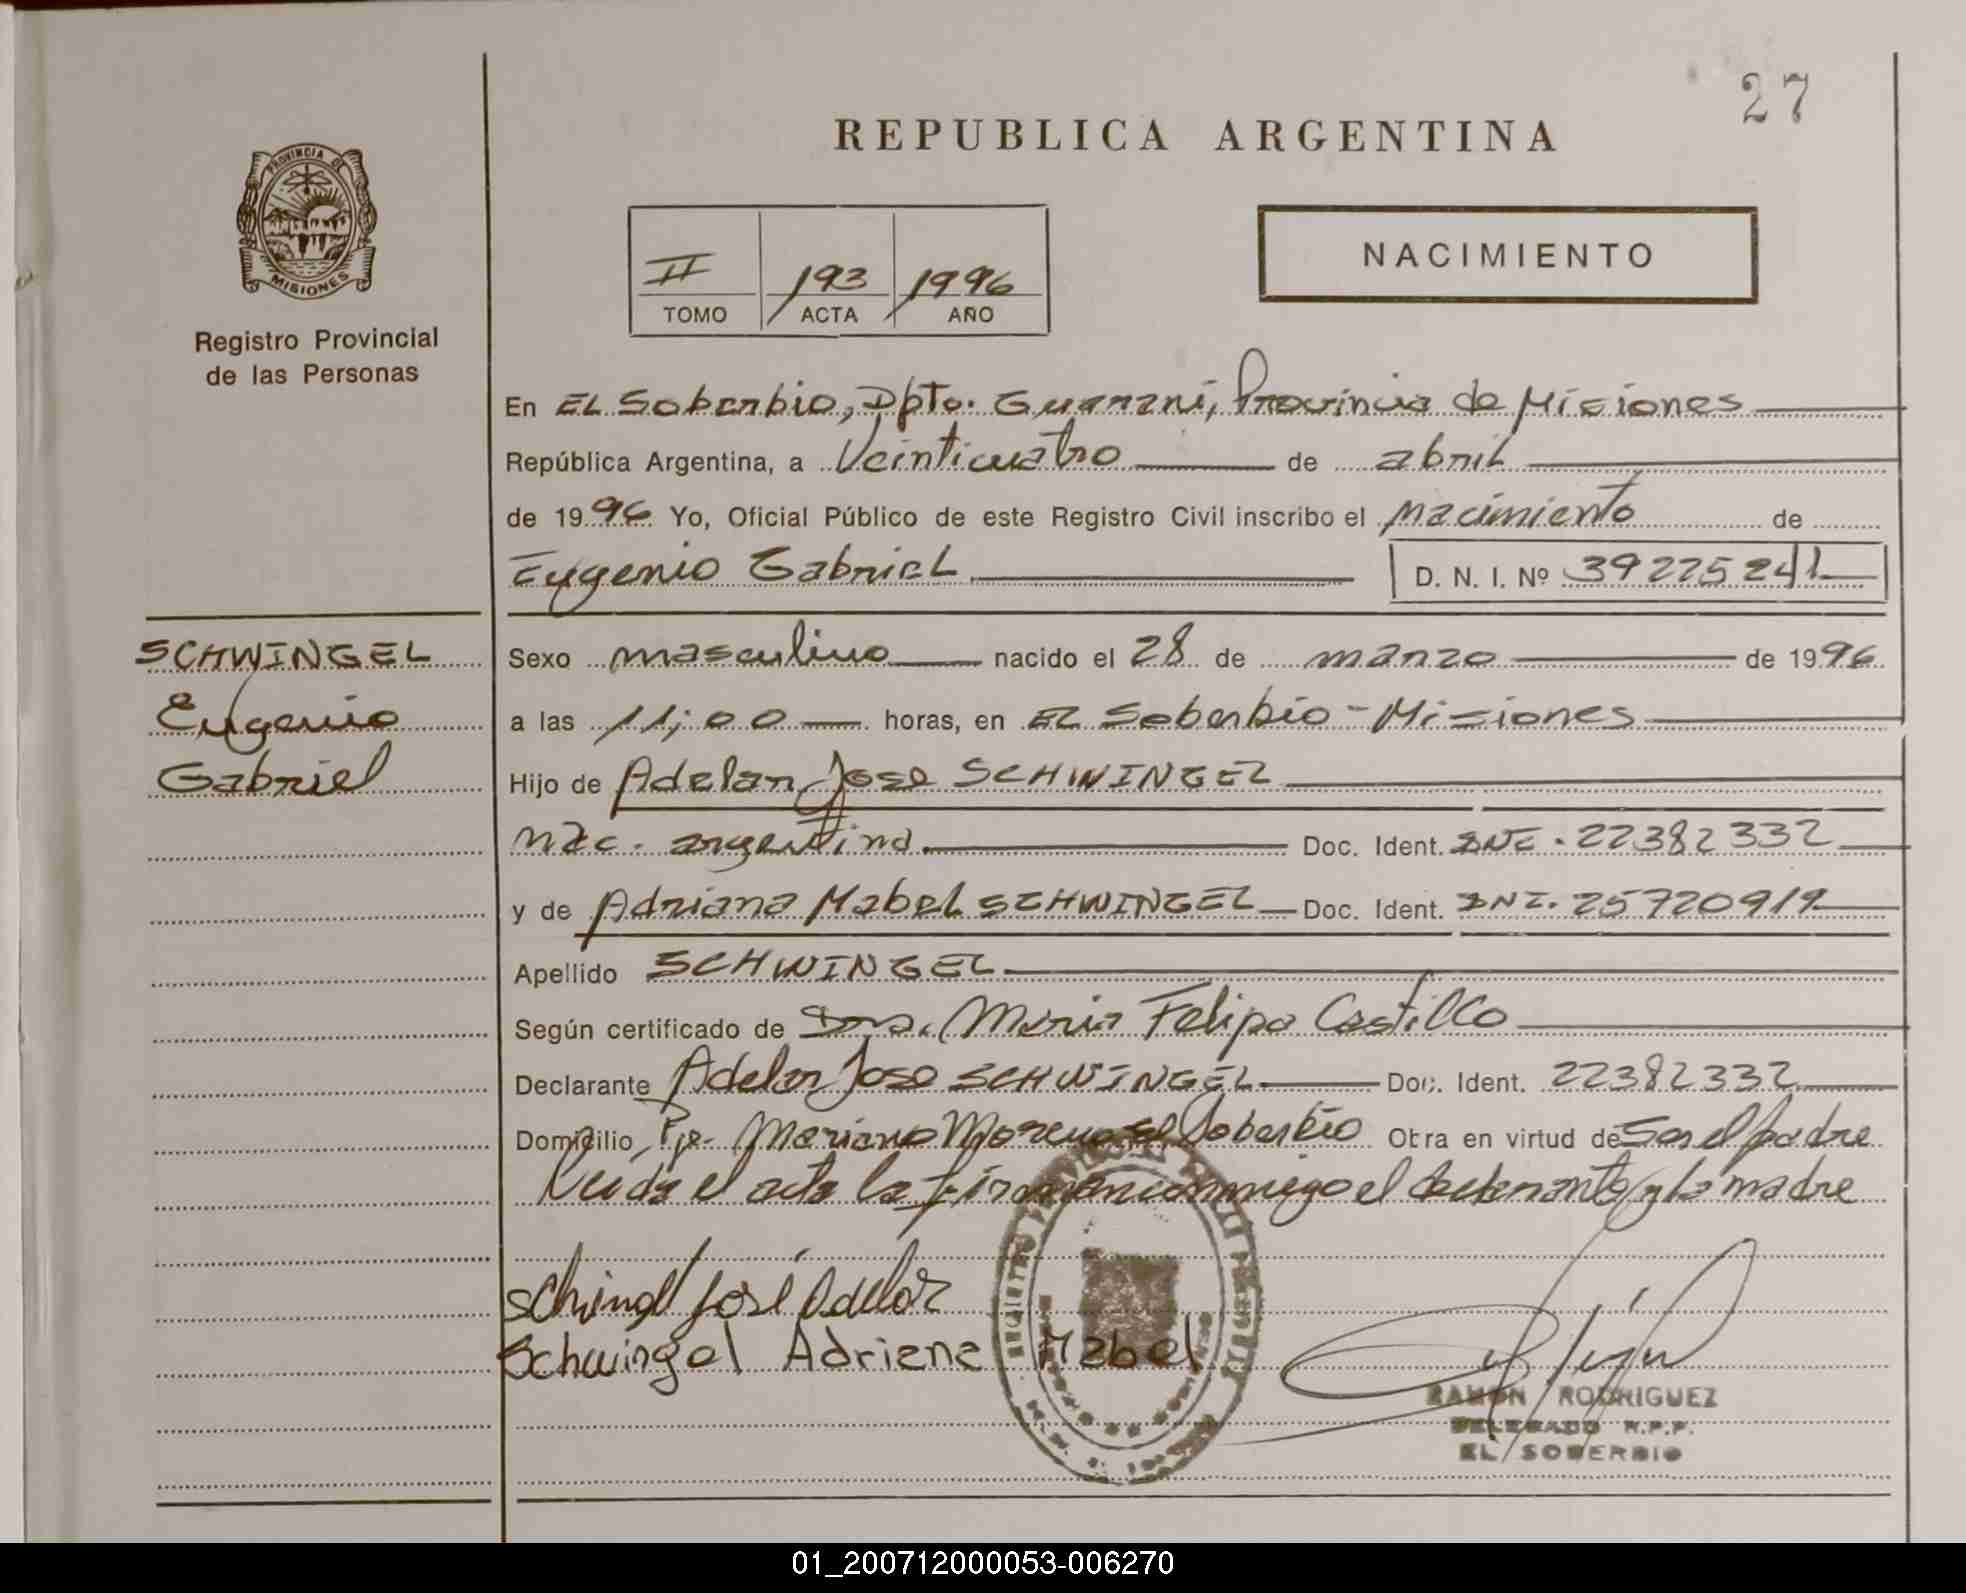 27
REPUBLICA ARGENTINA
PROVINCIA DE
MISIONES
Registro Provincial
de las Personas
II 193 1996
TOMO ACTA AÑO
NACIMIENTO
En EL Soberbio, Dpto. Guarani, Provincia de Misiones
República Argentina, a Veinticuatro de abril
de 1996 Yo, Oficial Público de este Registro Civil inscribo el Nacimiento de
Eugenio Gabriel D. N. I. Nº 39225241
SCHWINGEL
Eugenio
Gabriel
Sexo masculino nacido el 28 de marzo de 1996
a las 11,00 horas, en EL Soberbio - Misiones
Hijo de Adelar Jose SCHWINGEL
nac. argentina. Doc. Ident. DNI. 22382332
y de Adriana Mabel SCHWINGEL Doc. Ident. DNI. 25720919
Apellido SCHWINGEL
Según certificado de Dra. Maria Felipa Castillo
Declarante Adelar Jose SCHWINGEL Doc. Ident. 22382332
Domicilio Pje. Mariano Moreno El Soberbio Obra en virtud de Ser el padre
Leida el acta la firman conmigo el declarante y la madre
Schwingel José Adelar
Schwingel Adriana Mabel
RAMON RODRIGUEZ
DELEGADO R.P.P.
EL SOBERBIO
01_200712000053-006270